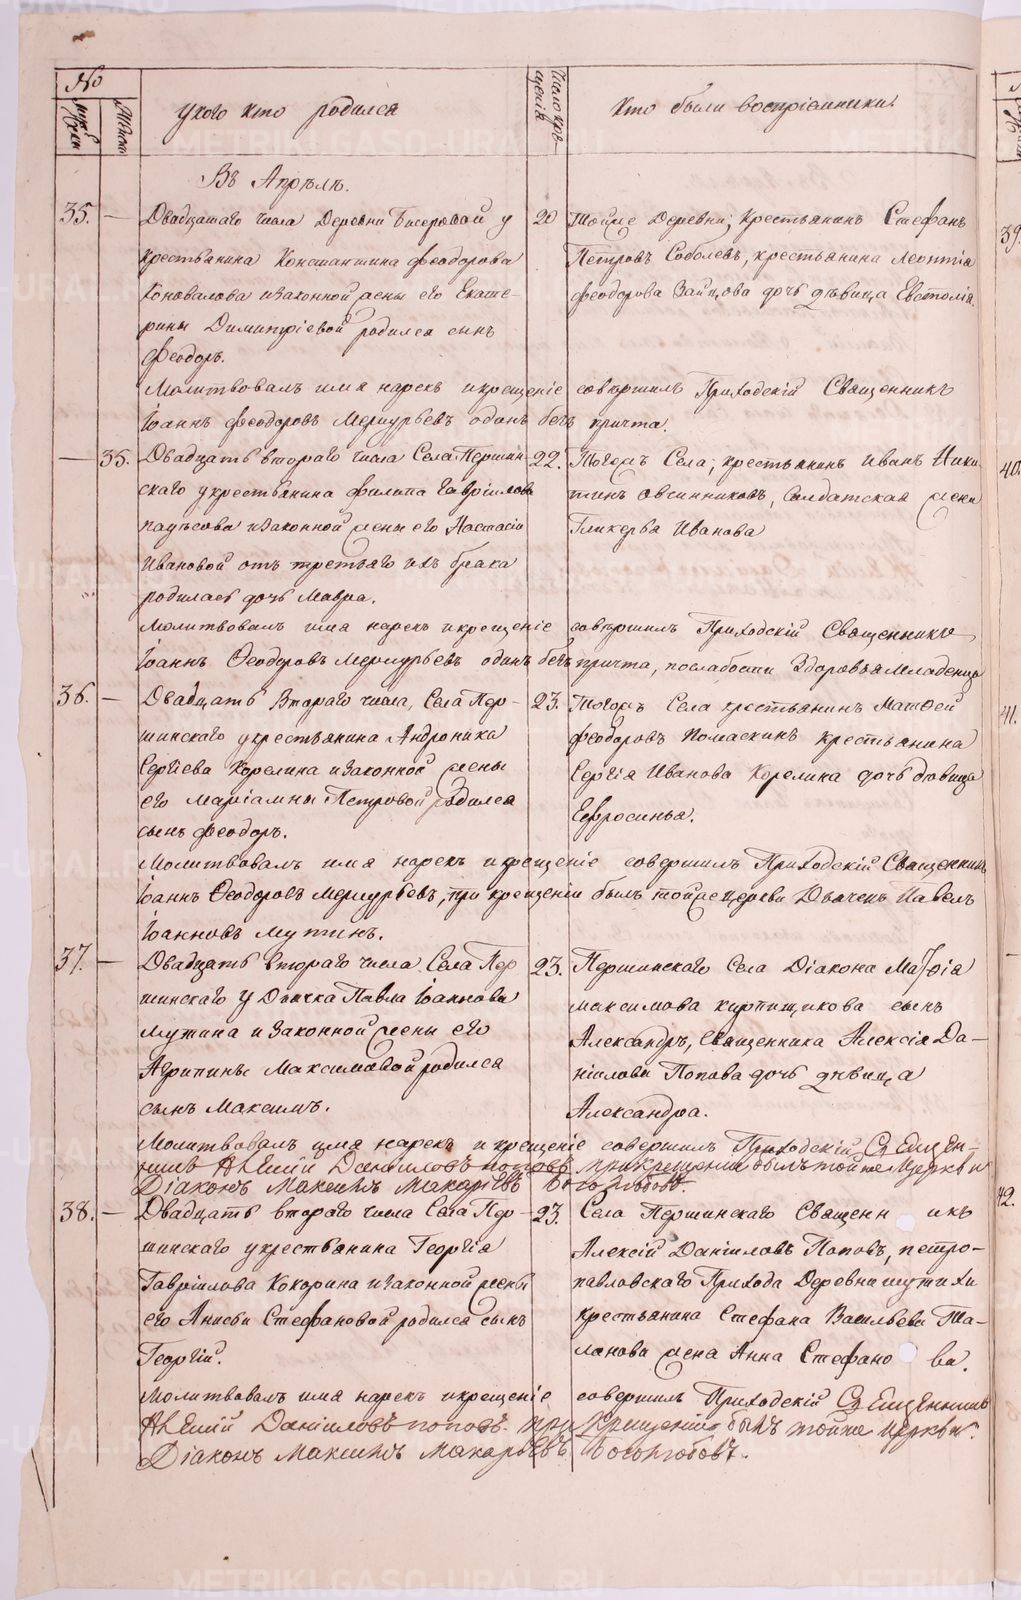 №
Мужеска
Женска
у кого кто родился
Число крещенія
Кто были воспріемники.
Въ Апрѣлѣ.
35. — Двадцатаго числа Деревни Бисеровой у
крестьянина Константина Феодорова
Коновалова и законной жены его Екате-
рины Димитріевой родился сынъ
Феодоръ.
20
Тойже Деревни; крестьянинъ Стефанъ
Петровъ Соболевъ, крестьянина Леонтія
Феодорова Зайцова дочь дѣвица Евстолія
Молитвовалъ имя нарекъ и крещеніе совѣршилъ Приходскій Священникъ
Іоаннъ Феодоровъ Меркурьевъ одинъ безъ причта.
— 35. Двадцать втораго числа Села Першин-
скаго у крестьянина Филипа Гаврілова
и законной жены его Настасіи
Ивановой отъ третьяго ихъ брака
родилась дочь Мавра.
22.
Тогожъ Села; крестьянинъ Иванъ Ники
тинъ Овсинниковъ, Солдатская жена
Гликерья Иванова
Молитвовалъ имя нарекъ и крещеніе совѣршилъ Приходскій Священникъ
Іоаннъ Ѳеодоровъ Меркурьевъ одинъ безъ причта, послабости Здоровья Младенца
36. — Двадцать Втораго числа, Села Пер-
шинскаго у крестьянина Андроника
Сергіева Корелина и законной жены
его Маріамны Петровой родился
сынъ Феодоръ.
23.
Тогожъ Села крестьянинъ Матѳей
Феодоровъ Помаскинъ крестьянина
Сергія Иванова Корелина дочь дѣвица
Ефросинья.
Молитвовалъ имя нарекъ и крещеніе совершилъ Приходскій Священникъ
Іоаннъ Ѳеодоровъ Меркурьевъ, при крещеніи былъ тойже церкви Дьячекъ Павелъ
Іоанновъ Мутинъ.
37. — Двадцать втораго числа Села Пер
шинскаго у Дьячка Павла Іоаннова
Мутина и Законной жены его
Агрипины Максимовой родился
сынъ Максимъ.
23.
Першинскаго Села Діакона
Максимова Кирпищикова сынъ
Александръ, Священника Алексія Да-
ніилова Попова дочь дѣвица
Александра.
Молитвовалъ имя нарекъ и крещеніе совершилъ Приходскій Священ-
никъ Алексій Даніиловъ Поповъ при крещеніи былъ тойже Церкви
Діаконъ Максимъ Макарьевъ Боголюбовъ.
38. — Двадцать втораго числа Села Пер-
шинскаго у крестьянина Георгія
Гавріилова Кокорина и законной жены
его Анисьи Стефановой родился сынъ
Георгій.
23.
Села Першинскаго Священникъ
Алексій Даніиловъ Поповъ, петро-
павловскаго Прихода Деревни Шутихи
крестьянина Стефана Васильева Та-
ланова жена Анна Стефанова.
Молитвовалъ имя нарекъ и крещеніе совершилъ Приходскій Священникъ
Алексій Даніиловъ Поповъ при крещеніи былъ тойже Церкви
Діаконъ Максимъ Макарьевъ Боголюбовъ.
39.
40.
41.
42.
METRIKI.GASO-URAL.RU